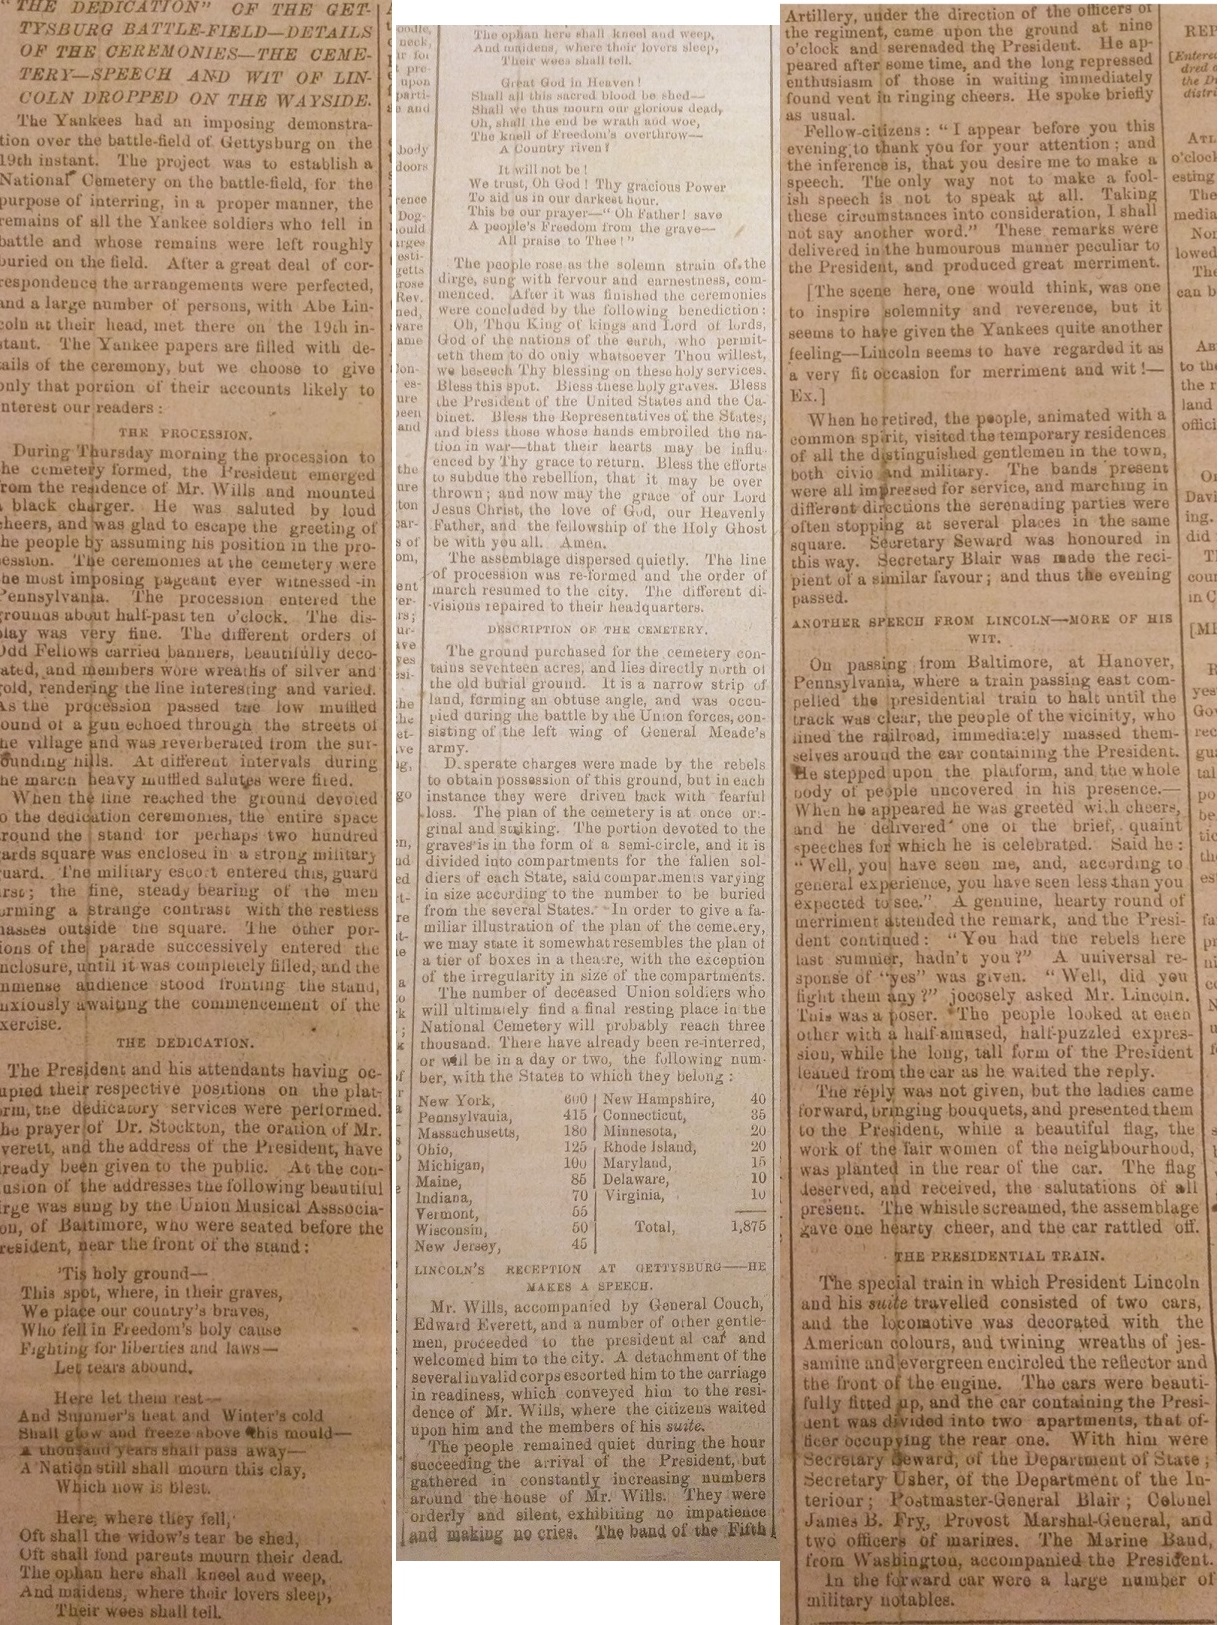 "THE DEDICATION" OF THE GET-
TYSBURG BATTLE-FIELD—DETAILS
OF THE CEREMONIES—THE CEME-
TERY—SPEECH AND WIT OF LIN-
COLN DROPPED ON THE WAYSIDE.
The Yankees had an imposing demonstra-
tion over the battle-field of Gettysburg on the
19th instant. The project was to establish a
National Cemetery on the battle-field, for the
purpose of interring, in a proper manner, the
remains of all the Yankee soldiers who fell in
battle and whose remains were left roughly
buried on the field. After a great deal of cor-
respondence the arrangements were perfected,
and a large number of persons, with Abe Lin-
coln at their head, met there on the 19th in-
stant. The Yankee papers are filled with de-
ails of the ceremony, but we choose to give
only that portion of their accounts likely to
nterest our readers:
THE PROCESSION.
During Thursday morning the procession to
he cemetery formed, the President emerged
rom the residence of Mr. Wills and mounted
black charger. He was saluted by loud
cheers, and was glad to escape the greeting of
he people by assuming his position in the pro-
ession. The ceremonies at the cemetery were
he most imposing pageant ever witnessed in
Pennsylvania. The procession entered the
grounds about half-past ten o'clock. The dis-
play was very fine. The different orders of
Odd Fellows carried banners, beautifully deco-
ated, and members wore wreaths of silver and
old, rendering the line interesting and varied.
As the procession passed the low muffled
ound of a gun echoed through the streets of
he village and was reverberated from the sur-
ounding hills. At different intervals during
he march heavy muffled salutes were fired.
When the line reached the ground devoted
o the dedication ceremonies, the entire space
round the stand for perhaps two hundred
ards square was enclosed in a strong military
uard. The military escort entered this, guard
irst; the fine, steady bearing of the men
orming a strange contrast with the restless
masses outside the square. The other por-
ions of the parade successively entered the
nclosure, until it was completely filled, and the
mmense audience stood fronting the stand,
nxiously awaiting the commencement of the
xercise.
THE DEDICATION.
The President and his attendants having oc-
upied their respective positions on the plat-
orm, the dedicatory services were performed.
he prayer of Dr. Stockton, the oration of Mr.
verett, and the address of the President, have
lready been given to the public. At the con-
usion of the addresses the following beautiful
irge was sung by the Union Musical Asssocia-
on, of Baltimore, who were seated before the
resident, near the front of the stand:
'Tis holy ground—
This spot, where, in their graves,
We place our country's braves,
Who fell in Freedom's holy cause
Fighting for liberties and laws—
Let tears abound.
Here let them rest—
And Summer's heat and Winter's cold
Shall glow and freeze above this mould—
A thousand years shall pass away—
A Nation still shall mourn this clay,
Which now is blest.
Here, where they fell,
Oft shall the widow's tear be shed,
Oft shall fond parents mourn their dead.
The ophan here shall kneel and weep,
And maidens, where their lovers sleep,
Their woes shall tell.
The ophan here shall kneel and weep,
And maidens, where their lovers sleep,
Their woes shall tell.
Great God in Heaven!
Shall all this sacred blood be shed—
Shall we thus mourn our glorious dead,
Oh, shall the end be wrath and woe,
The knell of Freedom's overthrow—
A Country riven?
It will not be!
We trust, Oh God! Thy gracious Power
To aid us in our darkest hour.
This be our prayer—"Oh Father! save
A people's Freedom from the grave—
All praise to Thee!"
The people rose as the solemn strain of the
dirge, sung with fervour and earnestness, com-
menced. After it was finished the ceremonies
were concluded by the following benediction:
Oh, Thou King of kings and Lord of lords,
God of the nations of the earth, who permit-
teth them to do only whatsoever Thou willest,
we beseech Thy blessing on these holy services.
Bless this spot. Bless these holy graves. Bless
the President of the United States and the Ca-
binet. Bless the Representatives of the States,
and bless those whose hands embroiled the na-
tion in war—that their hearts may be influ-
enced by Thy grace to return. Bless the efforts
to subdue the rebellion, that it may be over
thrown; and now may the grace of our Lord
Jesus Christ, the love of God, our Heavenly
Father, and the fellowship of the Holy Ghost
be with you all. Amen.
The assemblage dispersed quietly. The line
of procession was re-formed and the order of
march resumed to the city. The different di-
visions repaired to their headquarters.
DESCRIPTION OF THE CEMETERY.
The ground purchased for the cemetery con-
tains seventeen acres, and lies directly north of
the old burial ground. It is a narrow strip of
land, forming an obtuse angle, and was occu-
pied during the battle by the Union forces, con-
sisting of the left wing of General Meade's
army.
Desperate charges were made by the rebels
to obtain possession of this ground, but in each
instance they were driven back with fearful
loss. The plan of the cemetery is at once ori-
ginal and striking. The portion devoted to the
graves is in the form of a semi-circle, and it is
divided into compartments for the fallen sol-
diers of each State, said compartments varying
in size according to the number to be buried
from the several States. In order to give a fa-
miliar illustration of the plan of the cemetery,
we may state it somewhat resembles the plan of
a tier of boxes in a theatre, with the exception
of the irregularity in size of the compartments.
The number of deceased Union soldiers who
will ultimately find a final resting place in the
National Cemetery will probably reach three
thousand. There have already been re-interred,
or will be in a day or two, the following num-
ber, with the States to which they belong:
New York, 600 | New Hampshire, 40
Pennsylvania, 415 | Connecticut, 35
Massachusetts, 180 | Minnesota, 20
Ohio, 125 | Rhode Island, 20
Michigan, 100 | Maryland, 15
Maine, 85 | Delaware, 10
Indiana, 70 | Virginia, 10
Vermont, 55
Wisconsin, 50 | Total, 1,875
New Jersey, 45
LINCOLN'S RECEPTION AT GETTYSBURG—HE
MAKES A SPEECH.
Mr. Wills, accompanied by General Couch,
Edward Everett, and a number of other gentle-
men, proceeded to the president al car and
welcomed him to the city. A detachment of the
several invalid corps escorted him to the carriage
in readiness, which conveyed him to the resi-
dence of Mr. Wills, where the citizens waited
upon him and the members of his suite.
The people remained quiet during the hour
succeeding the arrival of the President, but
gathered in constantly increasing numbers
around the house of Mr. Wills. They were
orderly and silent, exhibiting no impatience
and making no cries. The band of the Fifth
Artillery, under the direction of the officers of
the regiment, came upon the ground at nine
o'clock and serenaded the President. He ap-
peared after some time, and the long repressed
enthusiasm of those in waiting immediately
found vent in ringing cheers. He spoke briefly
as usual.
Fellow-citizens: "I appear before you this
evening to thank you for your attention; and
the inference is, that you desire me to make a
speech. The only way not to make a fool-
ish speech is not to speak at all. Taking
these circumstances into consideration, I shall
not say another word." These remarks were
delivered in the humourous manner peculiar to
the President, and produced great merriment.
[The scene here, one would think, was one
to inspire solemnity and reverence, but it
seems to have given the Yankees quite another
feeling—Lincoln seems to have regarded it as
a very fit occasion for merriment and wit!—
Ex.]
When he retired, the people, animated with a
common spirit, visited the temporary residences
of all the distinguished gentlemen in the town,
both civic and military. The bands present
were all impressed for service, and marching in
different directions the serenading parties were
often stopping at several places in the same
square. Secretary Seward was honoured in
this way. Secretary Blair was made the reci-
pient of a similar favour; and thus the evening
passed.
ANOTHER SPEECH FROM LINCOLN—MORE OF HIS
WIT.
On passing from Baltimore, at Hanover,
Pennsylvania, where a train passing east com-
pelled the presidential train to halt until the
track was clear, the people of the vicinity, who
lined the railroad, immediately massed them-
selves around the car containing the President.
He stepped upon the platform, and the whole
body of people uncovered in his presence.—
When he appeared he was greeted with cheers,
and he delivered one of the brief, quaint
speeches for which he is celebrated. Said he:
"Well, you have seen me, and, according to
general experience, you have seen less than you
expected to see." A genuine, hearty round of
merriment attended the remark, and the Presi-
dent continued: "You had the rebels here
last summer, hadn't you?" A universal re-
sponse of "yes" was given. "Well, did you
fight them any?" jocosely asked Mr. Lincoln.
This was a poser. The people looked at each
other with a half-amused, half-puzzled expres-
sion, while the long, tall form of the President
leaned from the car as he waited the reply.
The reply was not given, but the ladies came
forward, bringing bouquets, and presented them
to the President, while a beautiful flag, the
work of the fair women of the neighbourhood,
was planted in the rear of the car. The flag
deserved, and received, the salutations of all
present. The whistle screamed, the assemblage
gave one hearty cheer, and the car rattled off.
THE PRESIDENTIAL TRAIN.
The special train in which President Lincoln
and his suite travelled consisted of two cars,
and the locomotive was decorated with the
American colours, and twining wreaths of jes-
samine and evergreen encircled the reflector and
the front of the engine. The cars were beauti-
fully fitted up, and the car containing the Presi-
dent was divided into two apartments, that of-
ficer occupying the rear one. With him were
Secretary Seward, of the Department of State;
Secretary Usher, of the Department of the In-
teriour; Postmaster-General Blair; Colonel
James B. Fry, Provost Marshal-General, and
two officers of marines. The Marine Band,
from Washington, accompanied the President.
In the forward car were a large number of
military notables.